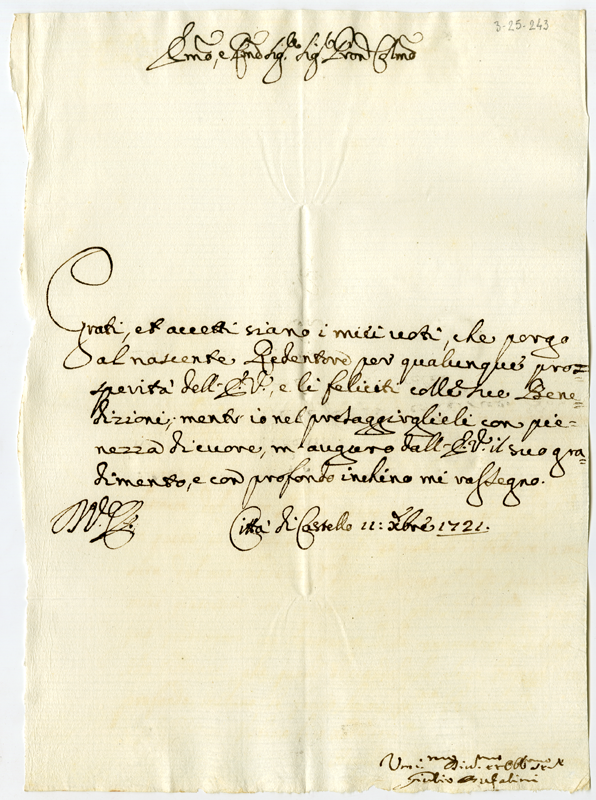 3-25-243
Em̃o, e Rm̃o Sig.re Sig.r Pron Colm̃o
Grati, et accetti siano i miei voti, che porgo
al nascente Redentore per qualunque pros=
sperità dell'E.V., e li feliciti colle sue Bene=
dizioni; mentr'io nel presaggirglieli con pie=
nezza di cuore, m'auguro dall'E.V. il suo gra=
dimento, e con profondo inchino mi rassegno.
Città di Castello 11: Xbre 1721.
Giulio Bufalini